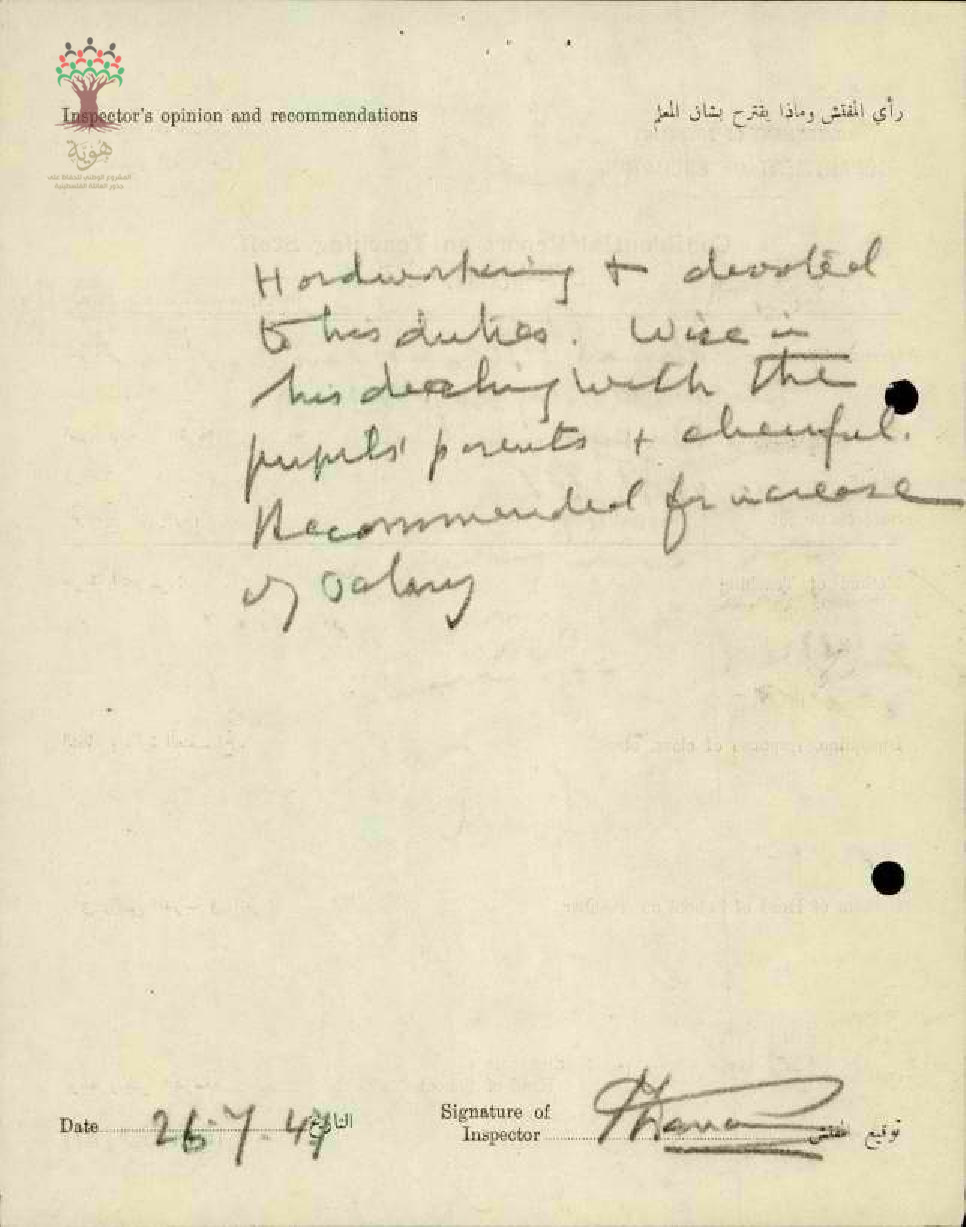 هوية
المشروع الوطني للحفاظ على
جذور العائلة الفلسطينية
Inspector's opinion and recommendations رأي المفتش وماذا يقترح بشان المعلم
Hardworking + devoted
to his duties. Wise in
his dealing with the
pupils' parents + cheerful.
Recommended for increase
of salary
Date 26.7.47 التاريخ
Signature of
Inspector توقيع المفتش